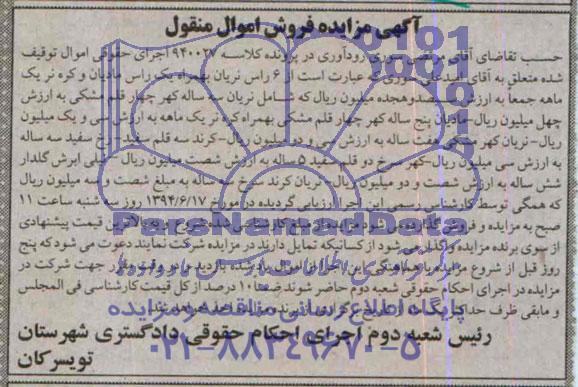 آگهی مزایده فروش اموال منقول
حسب تقاضای آقای مرتضی سوری رودآوری در پرونده کلاسه ۹۴۰۰۲۷ اجرای حقوقی اموال توقیف
شده متعلق به آقای امیدعلی سوری که عبارت است از ۶ راس نریان بهمراه یک راس مادیان و کره نر یک
ماهه جمعاً به ارزش سیصدوهجده میلیون ریال که شامل نریان سه ساله کهر چهار قلم مشکی به ارزش
چهل میلیون ریال-مادیان پنج ساله کهر چهار قلم مشکی بهمراه کره نر یک ماهه به ارزش سی و یک میلیون
ریال- نریان کهر هفت ساله به ارزش سی و دو میلیون ریال-کرند سه قلم سفید سه ساله
به ارزش سی میلیون ریال-کهر سرخ دو قلم سفید ۵ ساله به ارزش شصت میلیون ریال - ابرش گلدار
شش ساله به ارزش شصت و دو میلیون ریال- نریان کرند سرخ سه ساله به مبلغ شصت و سه میلیون ریال
که همگی توسط کارشناس رسمی این اجرا ارزیابی گردیده در مورخ ۱۳۹۴/۶/۱۷ روز سه شنبه ساعت ۱۱
صبح به مزایده و فروش گذارده می شود مزایده از مبلغ کارشناسی شده شروع و به بالاترین قیمت پیشنهادی
از سوی برنده مزایده واگذار می شود از کسانیکه تمایل دارند در مزایده شرکت نمایند دعوت می شود که پنج
روز قبل از شروع مزایده با هماهنگی این اجرا از اموال یاد شده بازدید و در وقت مقرر جهت شرکت در
مزایده در اجرای احکام حقوقی شعبه دوم حاضر شوند ضمناً ۱۰ درصد از کل قیمت کارشناسی فی المجلس
و مابقی ظرف حداکثر
رئیس شعبه دوم اجرای احکام حقوقی دادگستری شهرستان
تویسرکان
ParsNamadData
پایگاه اطلاع رسانی مناقصه و مزایده
۰۲۱-۸۸۳۴۹۶۷۰-۵